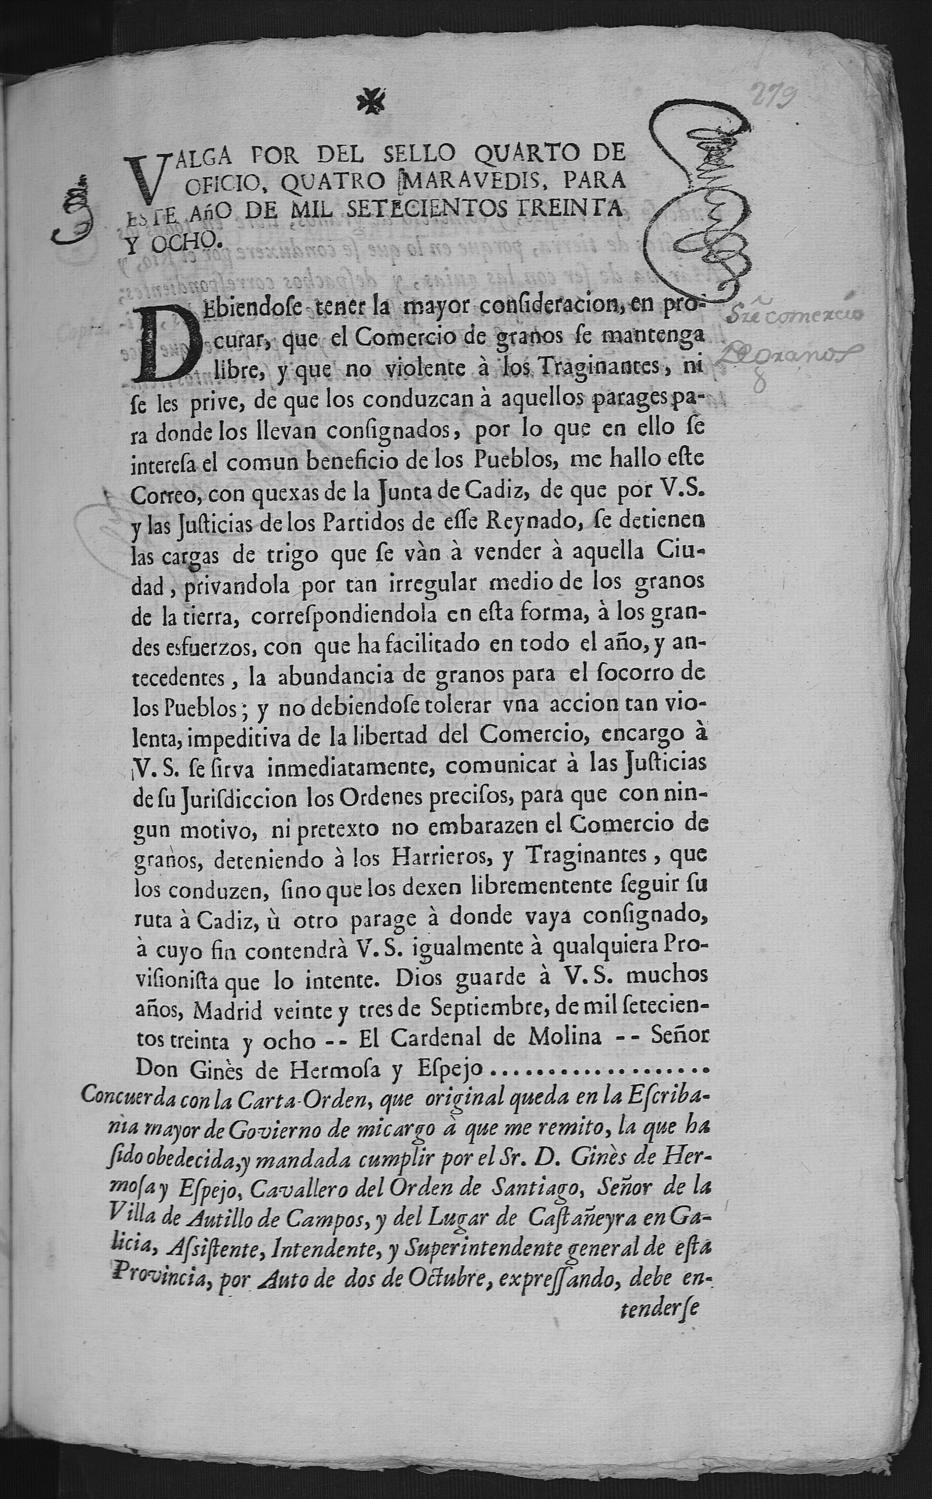 279
✠
VALGA POR DEL SELLO QUARTO DE
OFICIO, QUATRO MARAVEDIS, PARA
ESTE AñO DE MIL SETECIENTOS TREINTA
Y OCHO.
Sre comercio
De granos
DEbiendoſe tener la mayor conſideracion, en pro-
curar, que el Comercio de granos ſe mantenga
libre, y que no violente à los Traginantes, ni
ſe les prive, de que los conduzcan à aquellos parages pa-
ra donde los llevan conſignados, por lo que en ello ſe
intereſa el comun beneficio de los Pueblos, me hallo eſte
Correo, con quexas de la Junta de Cadiz, de que por V.S.
y las Juſticias de los Partidos de eſſe Reynado, ſe detienen
las cargas de trigo que ſe vàn à vender à aquella Ciu-
dad, privandola por tan irregular medio de los granos
de la tierra, correſpondiendola en eſta forma, à los gran-
des esfuerzos, con que ha facilitado en todo el año, y an-
tecedentes, la abundancia de granos para el ſocorro de
los Pueblos; y no debiendoſe tolerar vna accion tan vio-
lenta, impeditiva de la libertad del Comercio, encargo à
V. S. ſe ſirva inmediatamente, comunicar à las Juſticias
de ſu Juriſdiccion los Ordenes preciſos, para que con nin-
gun motivo, ni pretexto no embarazen el Comercio de
granos, deteniendo à los Harrieros, y Traginantes, que
los conduzen, ſino que los dexen librementente ſeguir ſu
ruta à Cadiz, ù otro parage à donde vaya conſignado,
à cuyo fin contendrà V. S. igualmente à qualquiera Pro-
viſioniſta que lo intente. Dios guarde à V. S. muchos
años, Madrid veinte y tres de Septiembre, de mil ſetecien-
tos treinta y ocho -- El Cardenal de Molina -- Señor
Don Ginès de Hermoſa y Eſpejo...................
Concuerda con la Carta-Orden, que original queda en la Eſcriba-
nia mayor de Govierno de mi cargo à que me remito, la que ha
ſido obedecida, y mandada cumplir por el Sr. D. Ginès de Her-
moſa y Eſpejo, Cavallero del Orden de Santiago, Señor de la
Villa de Autillo de Campos, y del Lugar de Caſtañeyra en Ga-
licia, Aſsiſtente, Intendente, y Superintendente general de eſta
Provincia, por Auto de dos de Octubre, expreſſando, debe en-
tenderſe